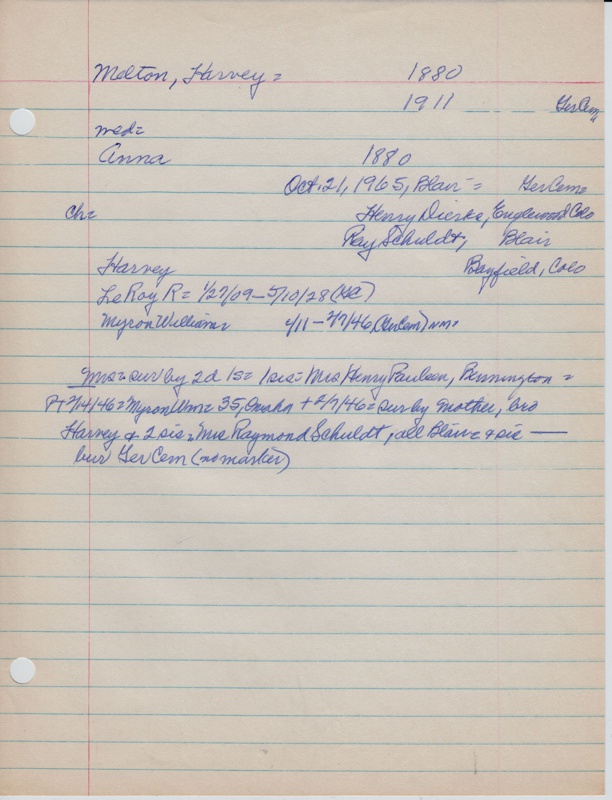 Melton, Harvey = 1880
1911 GerCem
med=
Anna 1880
Oct. 21, 1965, Blair = GerCem
Ch= Henry Dierks, Englewood Colo
Ray Schuldt, Blair
Harvey Bayfield, Colo
LeRoy R = 1/27/09 – 5/10/28 (HC)
Myron William 4/11 – 2/7/46, (GerCem) nm.
Mrs = sur by 2d 1s = 1sis = Mrs Henry Paulsen, Bennington =
PT 2/14/46 = Myron Wm = 35, Omaha + 2/7/46 = sur by mother, bro
Harvey & 2 sis = Mrs Raymond Schuldt, all Blair = & sis —
bur GerCem (no marker)